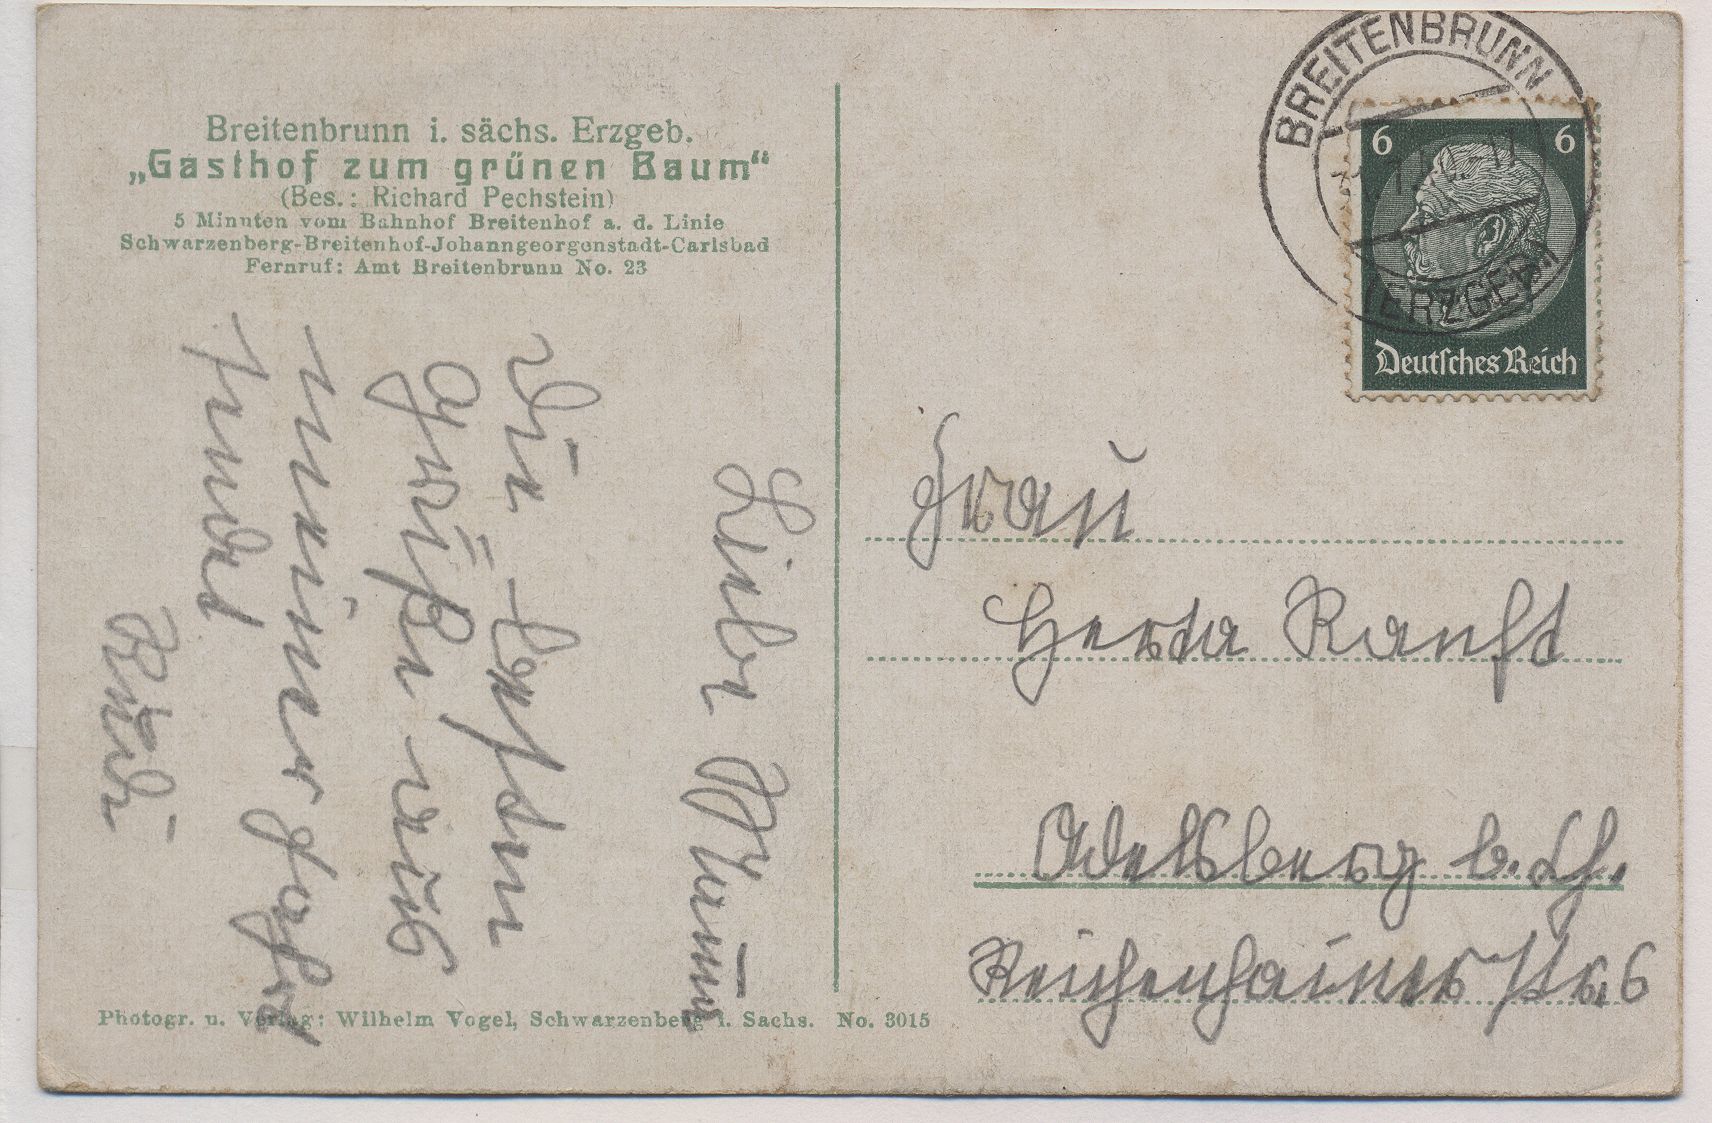 Breitenbrunn i. sächs. Erzgeb.
„Gasthof zum grünen Baum“
(Bes.: Richard Pechstein)
5 Minuten vom Bahnhof Breitenhof a. d. Linie
Schwarzenberg-Breitenhof-Johanngeorgenstadt-Carlsbad
Fernruf: Amt Breitenbrunn No. 23
Liebe Mama
Die besten
Grüße aus
meiner
sendet
Rudi
Photogr. u. Verlag: Wilhelm Vogel, Schwarzenberg i. Sachs. No. 3015
BREITENBRUNN
(ERZGEB.)
6 6
Deutsches Reich
Frau
Herta Ranft
Adelsberg b. Ch.
Reichenhainer Str. 6